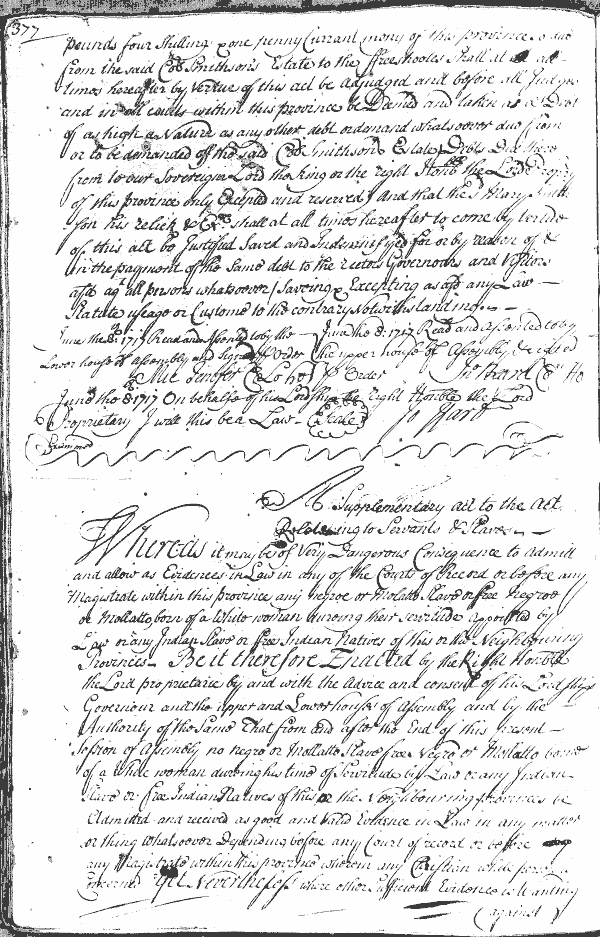 377
pounds four shilling & one penny Currant mony of this province so due
from the said Coll Smithson's Estate to the ffreeschooles shall at all
times hereafter by Vertue of this act be Adjudged and before all Judges
and in all courts within this province be Deemed and taken as a Debt
of as high a Nature as any other debt or demand whatsoever due from
or to be demanded of the said Coll Smithson's Estate Debts Due there
from to our Sovereign Lord the King or the right Honble the Lord Propry
of this province only Excepted and reserved And that the sd Mary Smith
son his relict & Exrx shall at all times hereafter to come by vertue
of this act be Justified Saved and Indemnifyed for or by reason of
in the payment of the Same debt to the rectors Governours and Visitors
afsd agt all persons whatsoever saveing & Excepting as afsd any Law
Statute usage or Custome to the contrary Notwithstanding
June the 8: 1717 Read and assented to by the
Lower house of Assembly and signed p Order
Mic Jenifer Cl Lo ho
June the 8: 1717 Read and assented to by
the upper house of Assembly & signed
p Order
Ho
June the 8 1717 On behalfe of his Lordship the right Honble the Lord
Proprietary I will this be a Law
Seale
Jo Hart
A Supplementary act to the Act
Relateing to Servants & Slaves
Whereas it may be of Very Dangerous Consequence to Admitt
and allow as Evidences in Law in any of the Courts of Record or before any
Magistrate within this province any negroe or Mollatto Slave or free Negroe
or Mollatto born of a White woman dureing their servitude appointed by
Law or any Indian Slave or free Indian Natives of this or the Neighbouring
Provinces Be it therefore Enacted by the Right Honble
the Lord proprietarie by and with the Advice and consent of his Lordships
Governour and the upper and Lower houses of Assembly and by the
Authority of the Same That from and after the End of this present
Session of Assembly no negro or Mollatto Slave free Negro or Mollatto borne
of a white woman dureing his time of Servitude by Law or any Indian
Slave or free Indian Natives of this or the Neighbouring provinces be
Admitted and received as good and Valid Evidence in Law in any matter
or thing whatsoever Depending before any Court of record or before
any Magistrate within this province wherein any Christian white person
concerned Yet Nevertheless where other Sufficient Evidence is Wanting
against